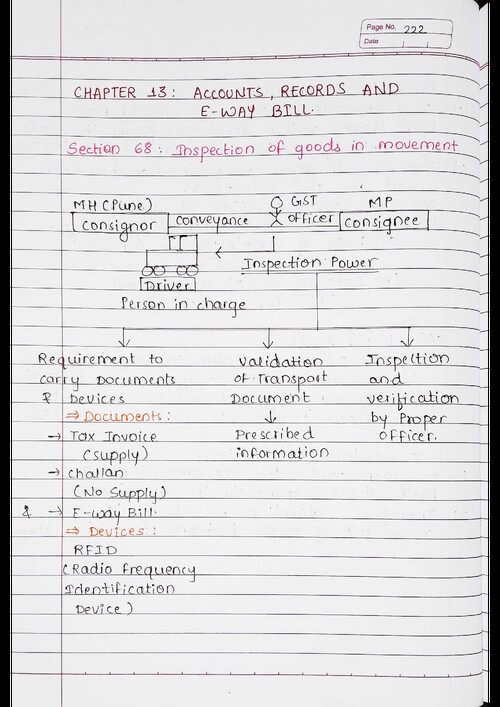 Page No. 222
Date
CHAPTER 13: ACCOUNTS, RECORDS AND
E-WAY BILL.
Section 68: Inspection of goods in movement
MH (Pune)
GST
MP
consignor
conveyance
officer
consignee
Driver
Inspection Power
Person in charge
Requirement to
carry Documents
& Devices
⇒ Documents:
→ Tax Invoice
(supply)
→ challan
(No Supply)
& → E-way Bill.
⇒ Devices:
RFID
(Radio Frequency
Identification
Device)
validation
of Transport
Document
Prescribed
information
Inspection
and
verification
by Proper
officer.